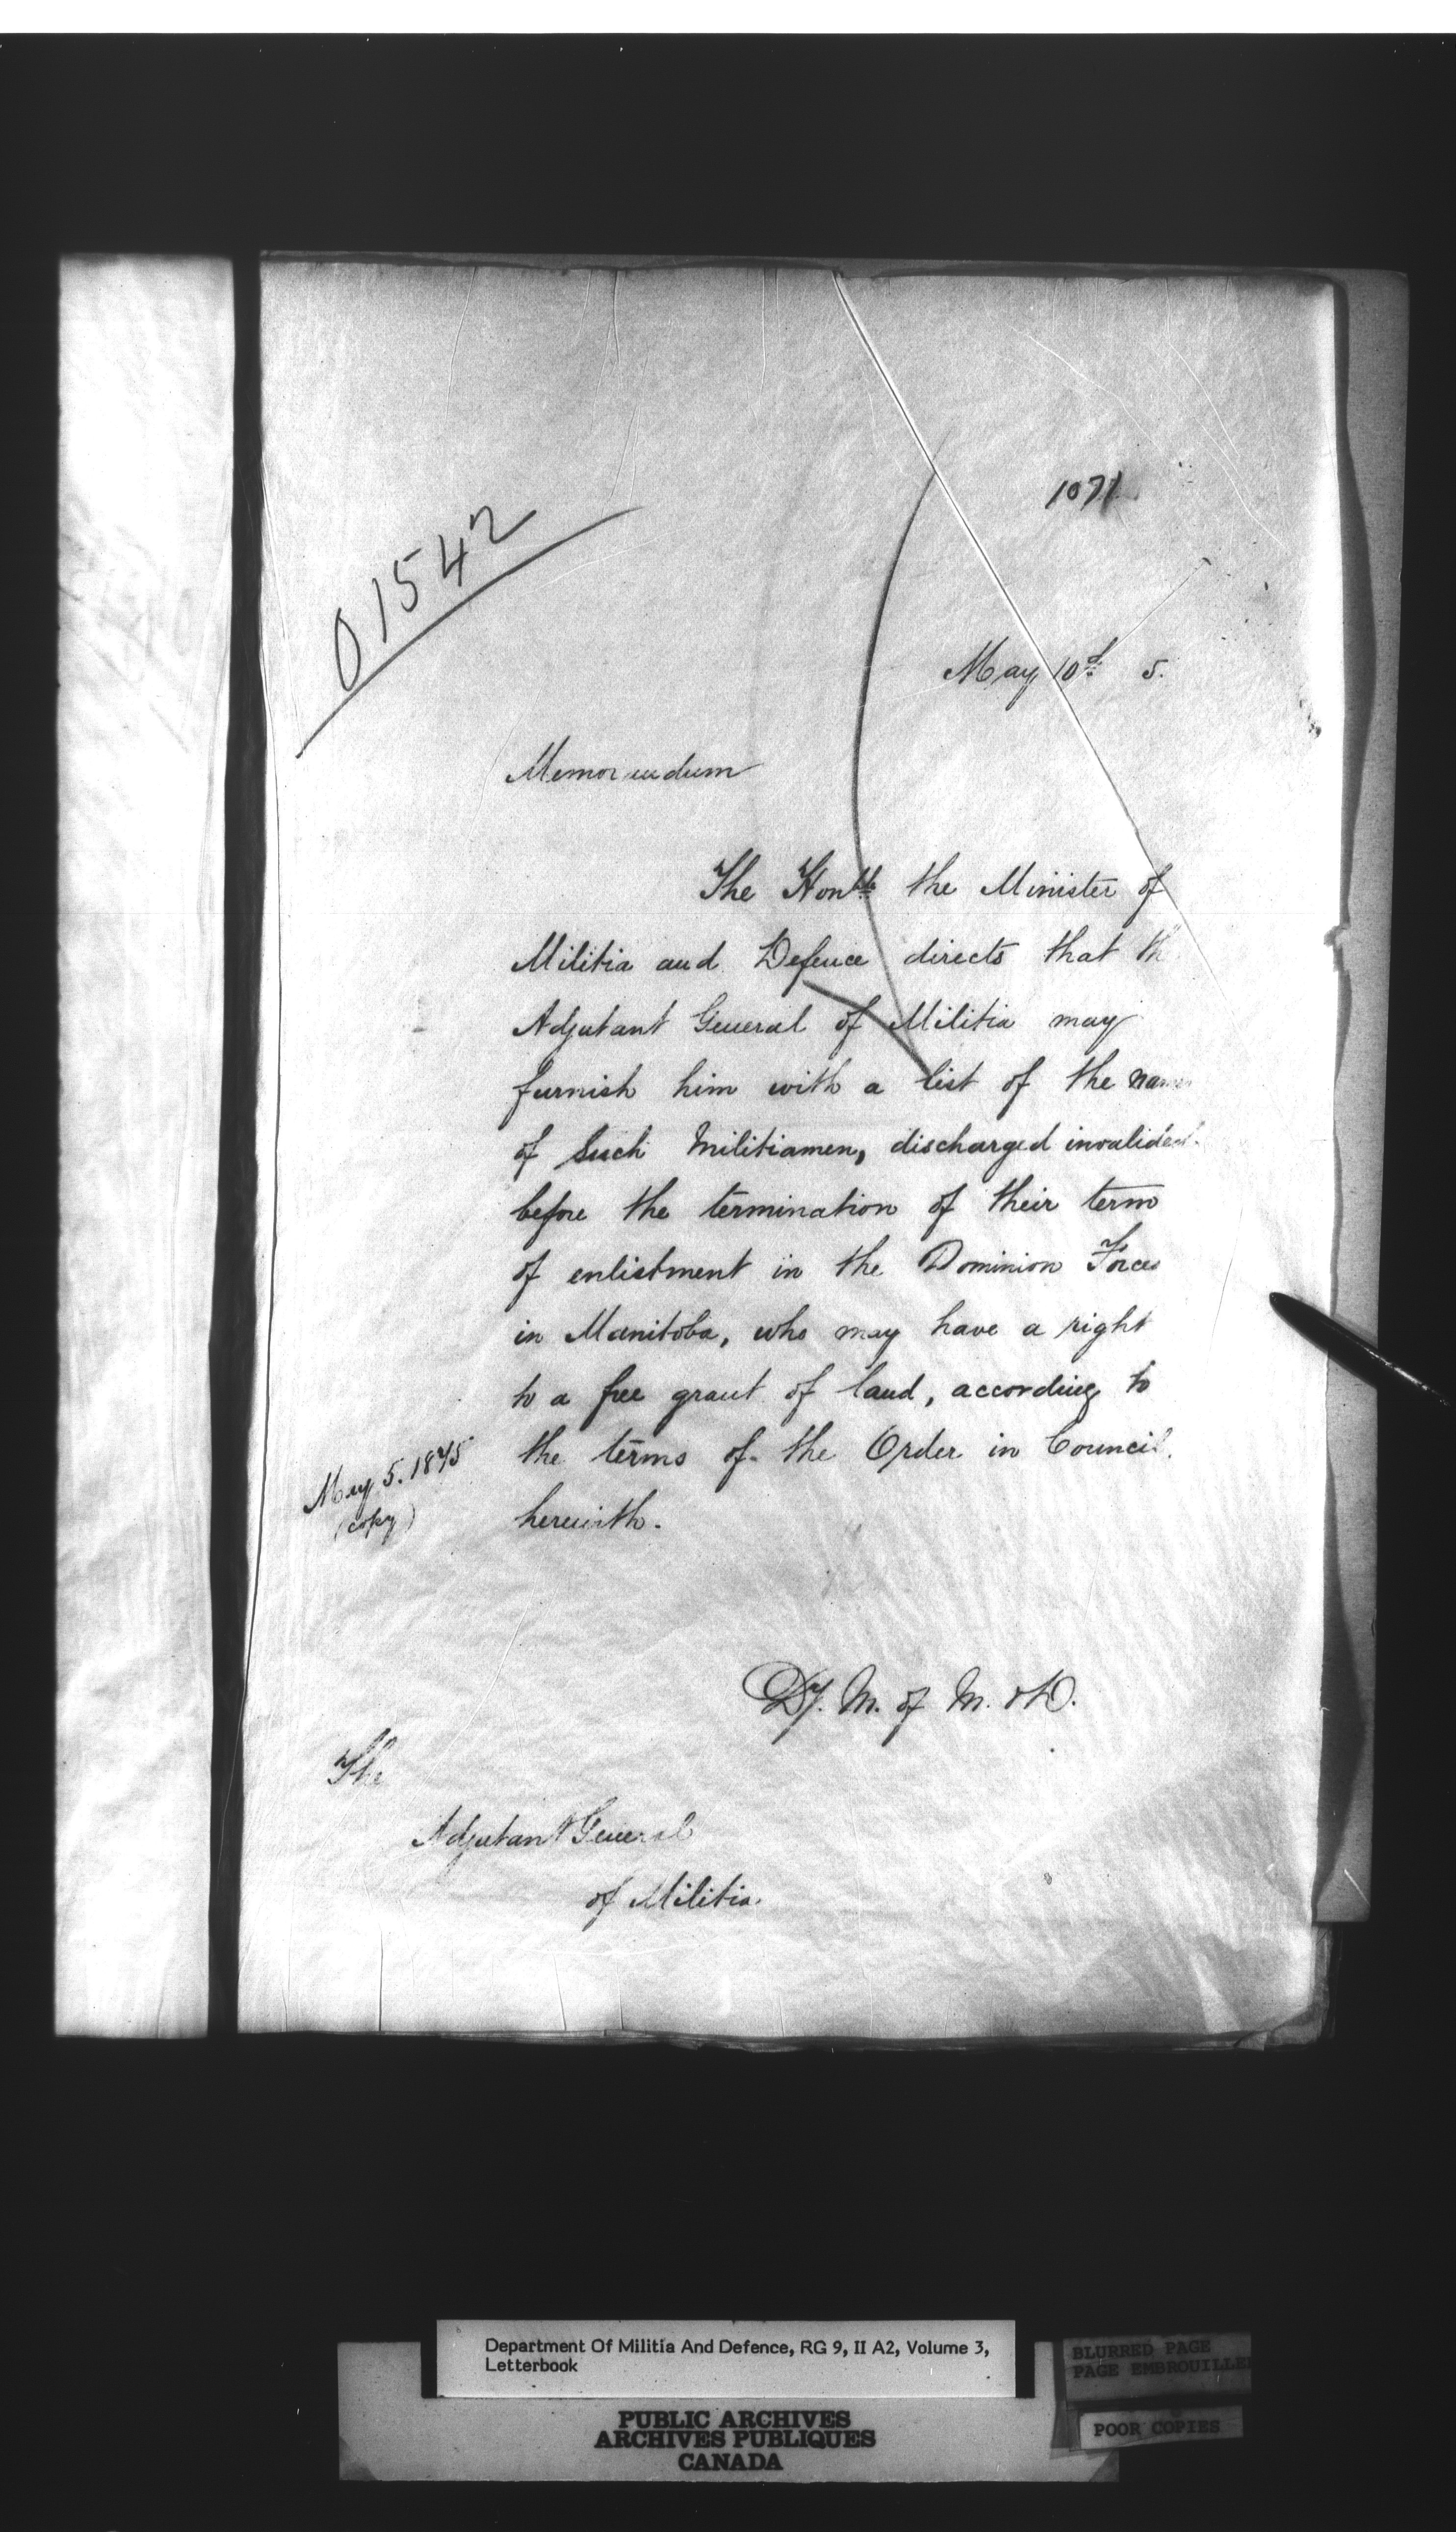 1071
01542
May 10th 5.
Memorandum
The Honble the Minister of
Militia and Defence directs that the
Adjutant General of Militia may
furnish him with a list of the names
of such Militiamen, discharged invalided
before the termination of their term
of enlistment in the Dominion Forces
in Manitoba, who may have a right
to a free grant of land, according to
the terms of the Order in Council
May 5. 1875
(copy)
herewith.
Dy. M. of M. & D.
The
Adjutant General
of Militia.
Department Of Militia And Defence, RG 9, II A2, Volume 3,
Letterbook
BLURRED PAGE
PAGE EMBROUILLEE
POOR COPIES
PUBLIC ARCHIVES
ARCHIVES PUBLIQUES
CANADA